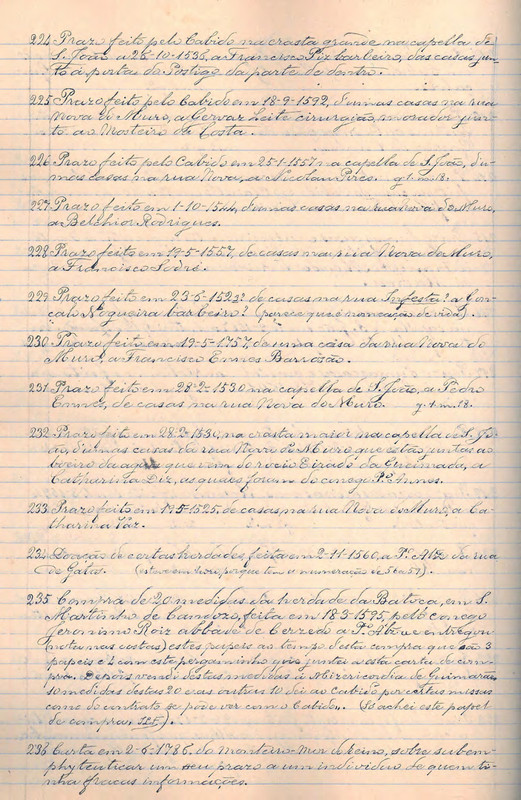 224 Prazo feito pelo Cabido na crasta grande na capella de
S. João a 25-10-1536, a Francisco Piz barbeiro, das casas jun-
to á porta do Postigo da parte de dentro.
225 Prazo feito pelo Cabido em 18-9-1592, dumas casas na rua
Nova do Muro, a Gervaz Leite cirurgião, morador jun-
to ao Mosteiro da Costa.
226 Prazo feito pelo Cabido em 25-1-1557 na capella de S. João, du-
mas casas na rua Nova, a Nicolau Pires. g. 1. m. 18.
227 Prazo feito em 1-10-1544, dumas casas na rua Nova do Muro,
a Belchior Rodrigues.
228 Prazo feito em 19-5-1557, de casas na rua Nova do Muro,
a Francisco Sodré.
229 Prazo feito em 23-5-1523? de casas na rua Infesta? a Gon-
çalo Nogueira barbeiro? (parece que é nomeação de vida).
230 Prazo feito em 19-5-1757, de uma casa da rua Nova do
Muro, a Francisco Ennes Barrosão.
231 Prazo feito em 28-2-1530 na capella de S. João, a Pedro
Ennes, de casas na rua Nova do Muro. g. 1. m. 18.
232 Prazo feito em 28-2-1530, na crasta maior na capella de S. Jo-
ão, dumas casas da rua Nova do Muro que estão juntas ao
boeiro da agua que vem do rocio Eirado da Queimada, a
Catharina Diz, as quaes foram do conego P.º Annes.
233 Prazo feito em 19-5-1525, de casas na rua Nova do Muro, a Ca-
tharina Vaz.
234 Doação de certas herdades, feita em 2-11-1560, a P.º Alz da rua
de Gatos. (esteve em livro, porque tem a numeração de 56 a 59).
235 Compra de 20 medidas da herdade da Batoca, em S.
Martinho de Candozo, feita em 18-3-1595, pelo conego
Jeronimo Roiz abbade de Cerzedo a P.º Alz que entregou
(nota nas costas) estes papeis ao tempo desta compra que são 3
papeis e 2 com este pergaminho q vão juntos a esta carta de com-
pra. Depois vendi destas medidas á Misericordia de Guimarães
10 medidas destas 20 e as outras 10 dei ao Cabido por certas missas
como do contrato se póde ver com o Cabido. (Só achei este papel
de compra,
236 Carta em 2-6-1786, do Monteiro-Mor do Reino, sobre sub em-
phyteuticar um seu prazo a um individuo de quem ti-
nha fracas informações.